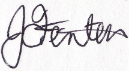 J Fenten